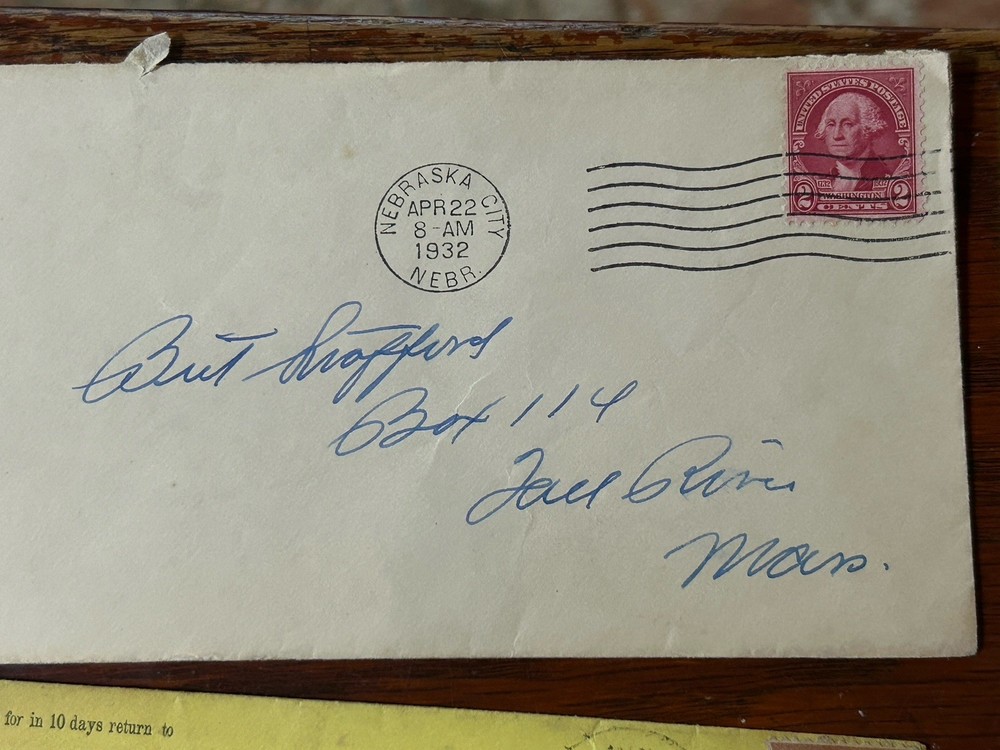 UNITED STATES POSTAGE
2 WASHINGTON 2
CENTS
NEBRASKA CITY
APR 22
8-AM
1932
NEBR.
Box 114
Fall River
Mass.
for in 10 days return to